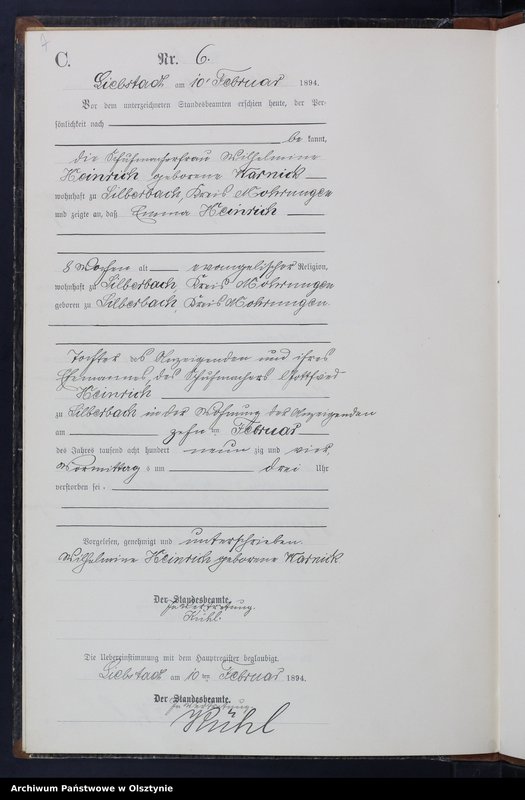 7
C. Nr. 6.
Liebstadt am 10 Februar 1894.
Vor dem unterzeichneten Standesbeamten erschien heute, der Per-
sönlichkeit nach
be kannt,
die Schuhmacherfrau Wilhelmine
Heinrich geborene Warnick
wohnhaft zu Silberbach, Kreis Mohrungen
und zeigte an, daß Emma Heinrich
8 Wochen alt evangelischer Religion,
wohnhaft zu Silberbach, Kreis Mohrungen
geboren zu Silberbach, Kreis Mohrungen
Tochter des Anzeigenden und ihres
Ehemannes, des Schuhmachers Gottfried
Heinrich
zu Silberbach in der Wohnung des Anzeigenden
am zehn ten Februar
des Jahres tausend acht hundert neun zig und vier
Vormittags um drei Uhr
verstorben sei.
Vorgelesen, genehmigt und unterschrieben.
Wilhelmine Heinrich geborene Warnick
Der Standesbeamte.
In Vertretung.
Kühl.
Die Uebereinstimmung mit dem Hauptregister beglaubigt.
Liebstadt am 10 ten Februar 1894.
Der Standesbeamte.
In Vertretung
Kühl
Archiwum Państwowe w Olsztynie